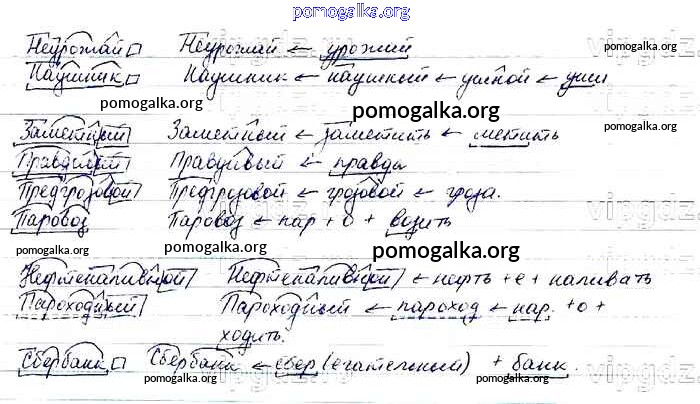 pomogalka.org
Неурожай Неурожай ← урожай
pomogalka.org
Наушник Наушник ← наушный ← ушной ← уши
pomogalka.org
pomogalka.org
Заметный Заметный ← заметить ← метить
pomogalka.org
Правдивый Правдивый ← правда
Предгрозовой Предгрозовой ← грозовой ← гроза.
Паровоз Паровоз ← пар + о + возить
vipgdz
pomogalka.org pomogalka.org pomogalka.org pomogalka.org
Нефтеналивной Нефтеналивной ← нефть + е + наливать
Пароходный Пароходный ← пароход ← пар. + о +
ходить.
Сбербанк Сбербанк ← сбер (егательный) + банк.
pomogalka.org pomogalka.org pomogalka.org